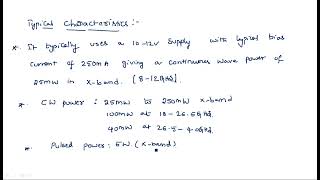 Typical Characteristics :-
* It typically uses a 10-12V supply with typical bias
current of 250mA giving a continuous wave power of
25mW in X-band. (8-12GHz).
* CW power : 25mW to 250mW X-band
100mW at 18-26.5GHz
40mW at 26.5-40GHz.
* Pulsed power : 5W. (X-band)